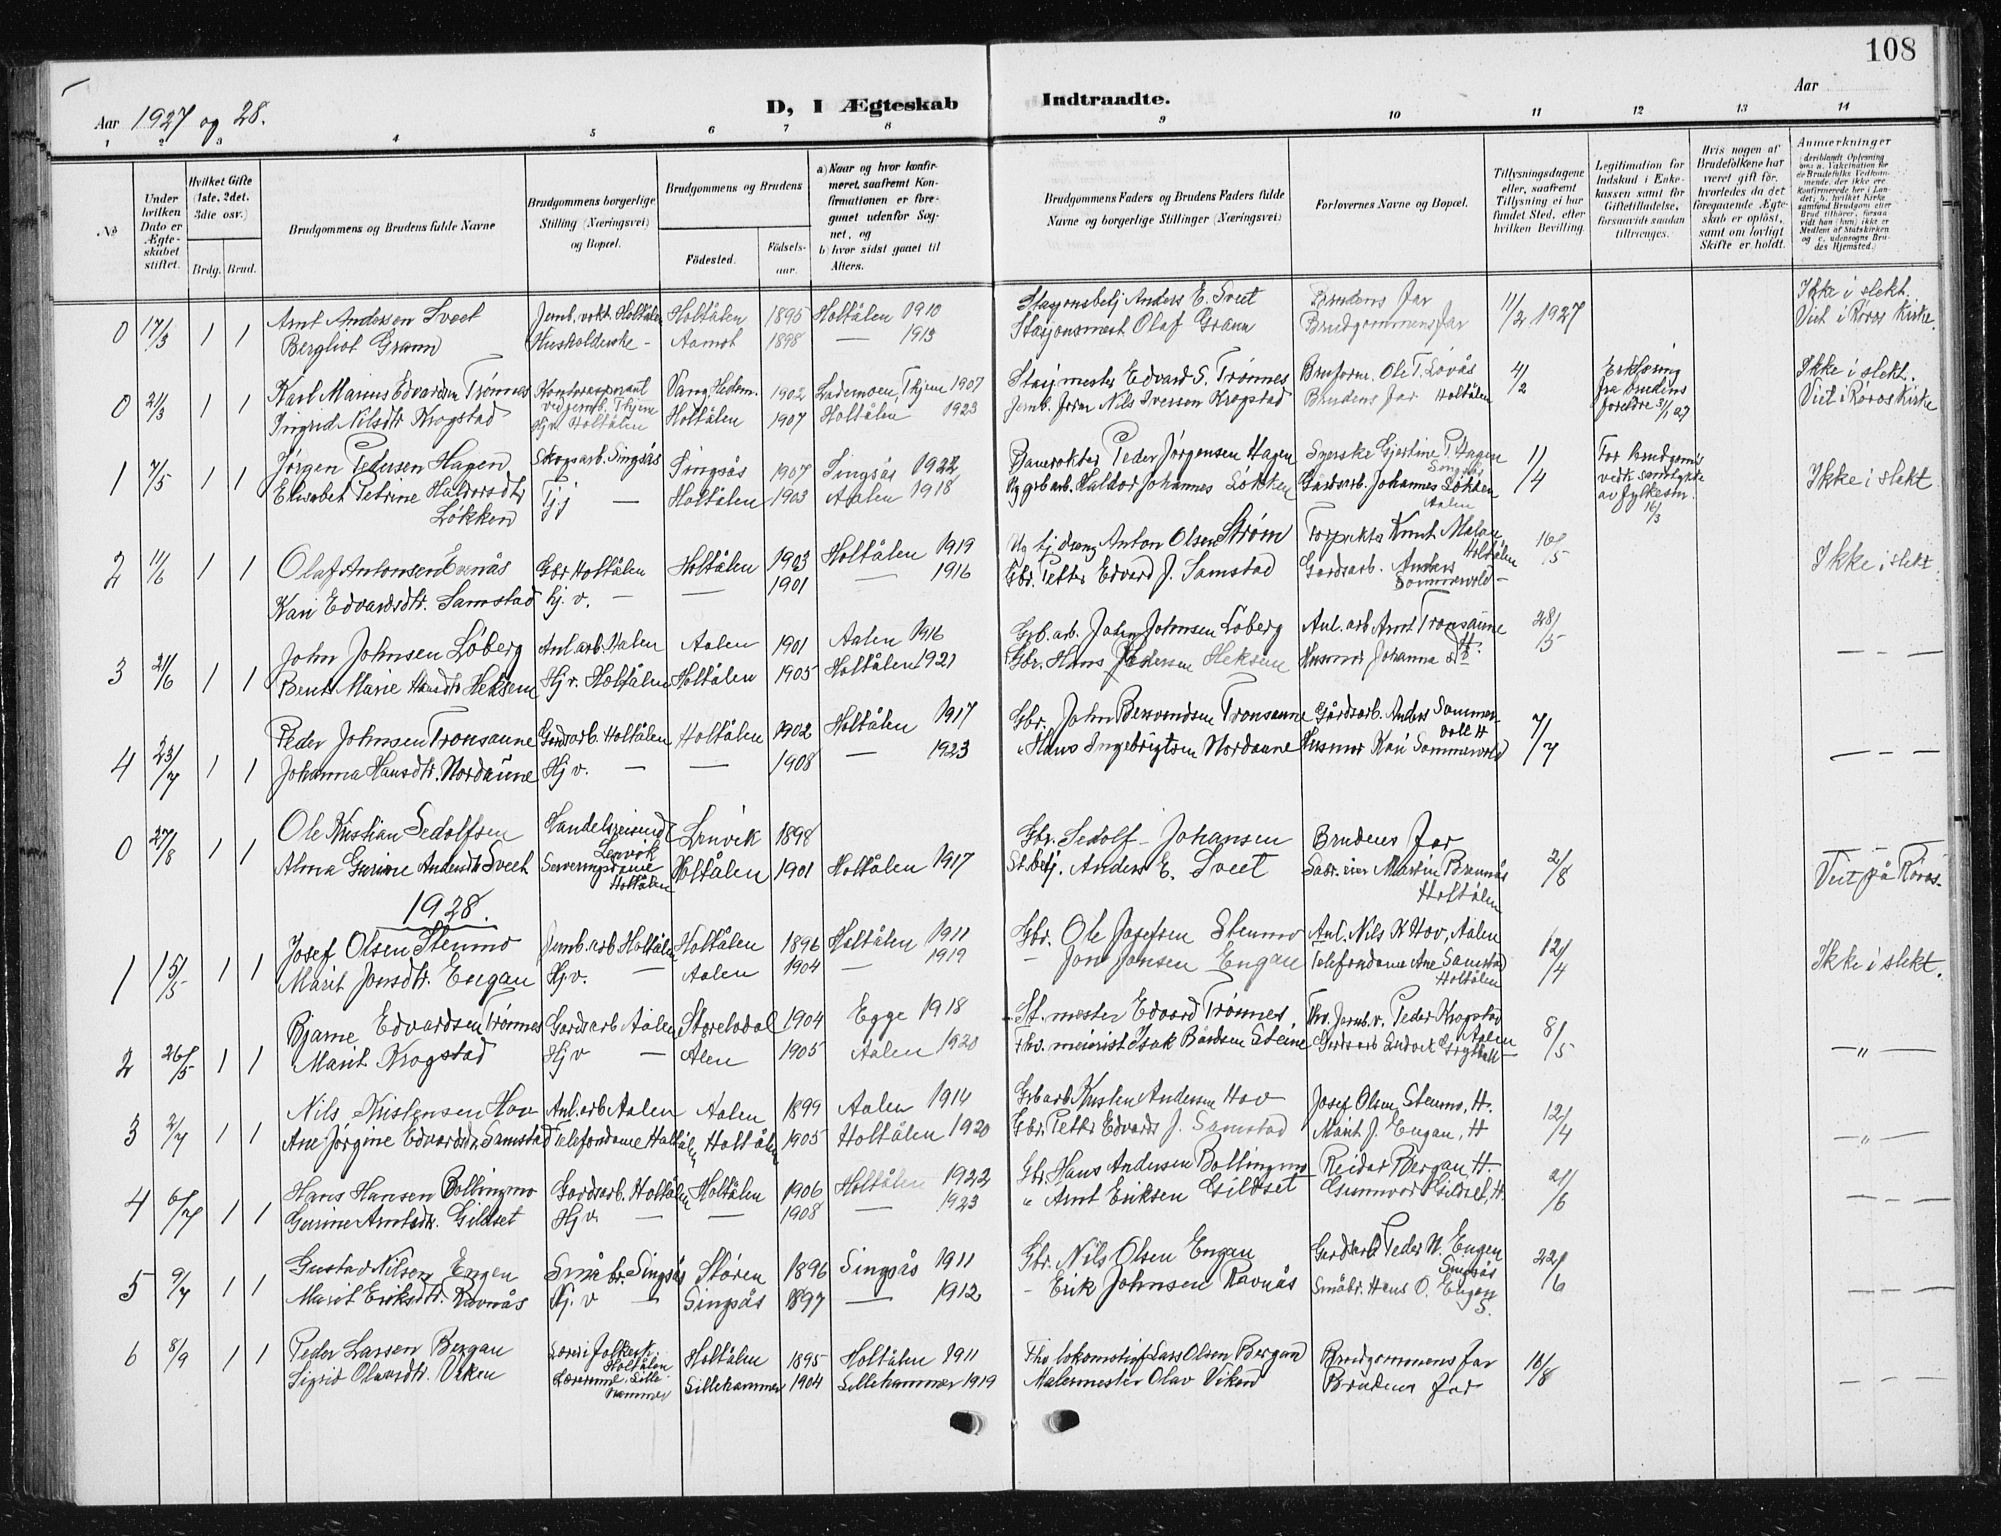 108
Aar 1927 og 28.
D, I Ægteskab Indtraadte.
Aar
1 2 3 4 5 6 7 8 9 10 11 12 13 14
No
Under hvilken Dato er Ægteskabet stiftet.
Hvilket Gifte (1ste, 2det, 3die osv.)
Brdg. Brud.
Brudgommens og Brudens fulde Navne
Brudgommens borgerlige Stilling (Næringsvei) og Bopæl.
Brudgommens og Brudens
Fødested. Fødselsaar.
a) Naar og hvor konfirmeret, saafremt Konfirmationen er foregaaet udenfor Sognet, og
b) hvor sidst gaaet til Alters.
Brudgommens Faders og Brudens Faders fulde Navne og borgerlige Stillinger (Næringsvei)
Forlovernes Navne og Bopæl.
Tillysningsdagene eller, saafremt Tillysning ei har fundet Sted, efter hvilken Bevilling.
Legitimation for Indskud i Enkekassen samt for Giftetilladelse, forsaavidt saadan tiltrænges.
Hvis nogen af Brudefolkene har været gift før, hvorledes da det foregaaende Ægteskab er opløst, samt om lovligt Skifte er holdt.
Anmærkninger
0 17/3 1 1 Arnt Andersen Sveet Jernb. vokt. Holtålen Holtålen 1895 Holtålen 1910 Stasjonsbetj Anders E. Sveet Brudens far 11/2 1927 Ikke i slekt.
Bergliot Grann Husholderske - Aamot 1898 — 1913 Stasjonsmest Olaf Grann Brudgommens far Viet i Røros Kirke.
0 21/3 1 1 Karl Marius Edvardsen Trønnes Vang, Hedem. 1902 Lademoen, Thjem 1907 Stasj mester Edvard S. Trønnes Ole T. Løvås 4/2 Erklæring Ikke i slekt.
Ingrid Nilsdtr Krogstad Hjv Holtålen Holtålen 1907 Holtålen - 1923 Jernb. form Nils Iversen Krogstad Brudens far Holtålen fra brudens foreldre 3/1 27 Viet i Røros Kirke
1 7/5 1 1 Jørgen Pedersen Hagen Skogsarb. Singsås Singsås 1907 Singsås 1922 Banevokter Peder Jørgensen Hagen Gjertine P. Hagen Singsås 11/4 For brudgommen
Elisabet Petrine Haldorsdtr Løkken Tj — Holtålen 1903 Aalen 1918 arb. Haldor Johannes Løkken Gårdsarb. Johannes Løkken Aalen vedk. samtykke av fylkesm. 16/3 Ikke i slekt
2 11/6 1 1 Olaf Antonsen Evenås Gbr Holtålen Holtålen 1903 Holtålen 1919 Anton Olsen Strøm Knut Holtålen 16/5 Ikke i slekt
Kari Edvardsdtr. Samstad hj. v. — — 1901 — 1916 Gbr. Petter Edvard J. Samstad Gårdsarb. Anders Sommervold -
3 21/6 1 1 John Johnsen Løberg Anl. arb. Aalen Aalen 1901 Aalen 1916 Grb. arb. John Johnsen Løberg Anl. arb Arnt Tronsaune H. 28/5
Berit Marie Hansdtr Heksem Hj v. Holtålen Holtålen 1905 Holtålen 1921 Gbr. Hans Pedersen Heksem Husmor Johanna — — —
4 23/7 1 1 Peder Johnsen Tronsaune Gårdsarb. Holtålen Holtålen 1902 Holtålen 1917 Gbr. John Tronsaune Gårdsarb. Anders Sommervoll H 7/7
Johanna Hansdtr. Nordaune Hj v. — — 1908 — 1923 " Hans Ingebrigtsen Nordaune Husmor Kari Sommervold — — —
0 27/8 1 1 Ole Kristian Sedolfsen Handelsreisende Lenvik Lenvik 1898 Gbr. Sedolf Johansen Brudens far 2/8
Alma Gurine Andersdtr Sveet Serveringsdame Holtålen Holtålen 1901 Holtålen 1917 St. betj. Anders E. Sveet Martin Holtålen Viet på Røros.
1928.
1 15/5 1 1 Josef Olsen Stenmo Jernb. arb Holtålen Holtålen 1896 Holtålen 1911 Gbr. Ole Josefsen Stenmo Anl. Nils K Hov, Aalen 12/4
Marit Jonsdtr. Engan Hj v. — Aalen 1904 — 1919 - Jon Jonsen Engan Telefondame Ane Samstad Holtålen Ikke i slekt.
2 26/5 1 1 Bjarne Edvardsen Trønnes Gårdsarb Aalen Storelvdal 1904 Egge 1918 St. mester Edvard Trønnes Peder Krogstad Aalen 8/5
Marit Krogstad Hj v — Alen 1905 Aalen 1920 fhv. meierist Isak Bårdsen Steine Gårdsarb Ludvik — — " —
3 2/7 1 1 Nils Kristensen Hov Anl. arb Aalen Aalen 1899 Aalen 1914 Grb arb Kristen Andersen Hov Josef Olsen Stenmo, H. 12/4
Ane Jørgine Edvardsdtr Samstad Telefondame Holtålen Holtålen 1905 Holtålen 1920 Gbr. Petter Edvard J. Samstad Marit J. Engan, H — " —
4 6/7 1 1 Hans Hansen Bollingmo Gårdsarb. Holtålen Holtålen 1906 Holtålen 1922 Gbr. Hans Andersen Bollingmo Reidar Bergan H. 21/6
Gurine Arntsdtr. Gildset Hj v. — — 1908 — 1923 " Arnt Eriksen Gildset Gunnvor Gildset, H. — — —
5 9/7 1 1 Gustav Nilsen Engen Småbr. Singsås Støren 1896 Singsås 1911 Gbr. Nils Olsen Engan Gårdsarb Peder N. Engen Singsås 22/6
Marit Eriksdtr. Ravnås Hj. v — Singsås 1897 — 1912 - Erik Johnsen Ravnås Småbr. Hans O. Engen S. — — —
6 8/9 1 1 Peder Larsen Bergan Lærer i folkesk. Holtålen Holtålen 1895 Holtålen 1911 Fhv lokomotivf Lars Olsen Bergan Brudgommens far 18/8
Sigrid Olavsdtr. Viken Lærerinne, Lillehammer Lillehammer 1904 Lillehammer 1919 Malermester Olav Viken Brudens far — — —